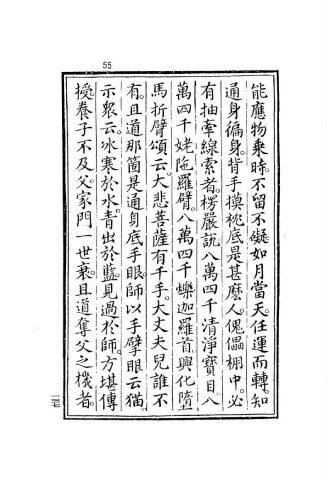 55
能應物乘時。不留不礙。如月當天。任運而轉。知
通身徧身。背手摸枕底。是甚麽人。傀儡棚中。必
有抽牽線索者。楞嚴說八萬四千清淨寶目。八
萬四千姥陁羅臂。八萬四千爍迦羅首。興化墮
馬折臂。頌云。大悲菩薩有千手。大丈夫兒誰不
有。且道那箇是通身底手眼。師以手擘眼云。猫。
示衆云。冰寒於水。青出於藍。見過於師。方堪傳
授。養子不及父。家門一世衰。且道奪父之機者。